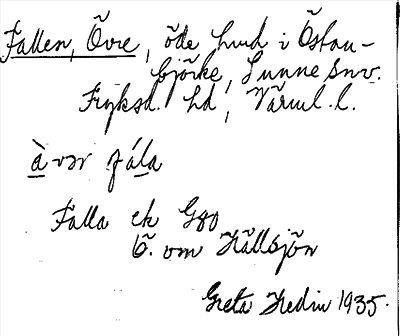 Fallen, Övre, öde hmd i Östan-
björke, Sunne snv.
Fryksd. hd, Värml. l.
à̱vər fá̱la
Falla ek G80
Ö. om Hällsjön
Greta Hedin 1935.